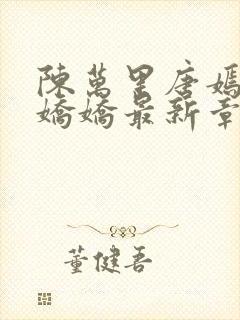 陳萬里唐嫣
嬌嬌最新章
董健吾